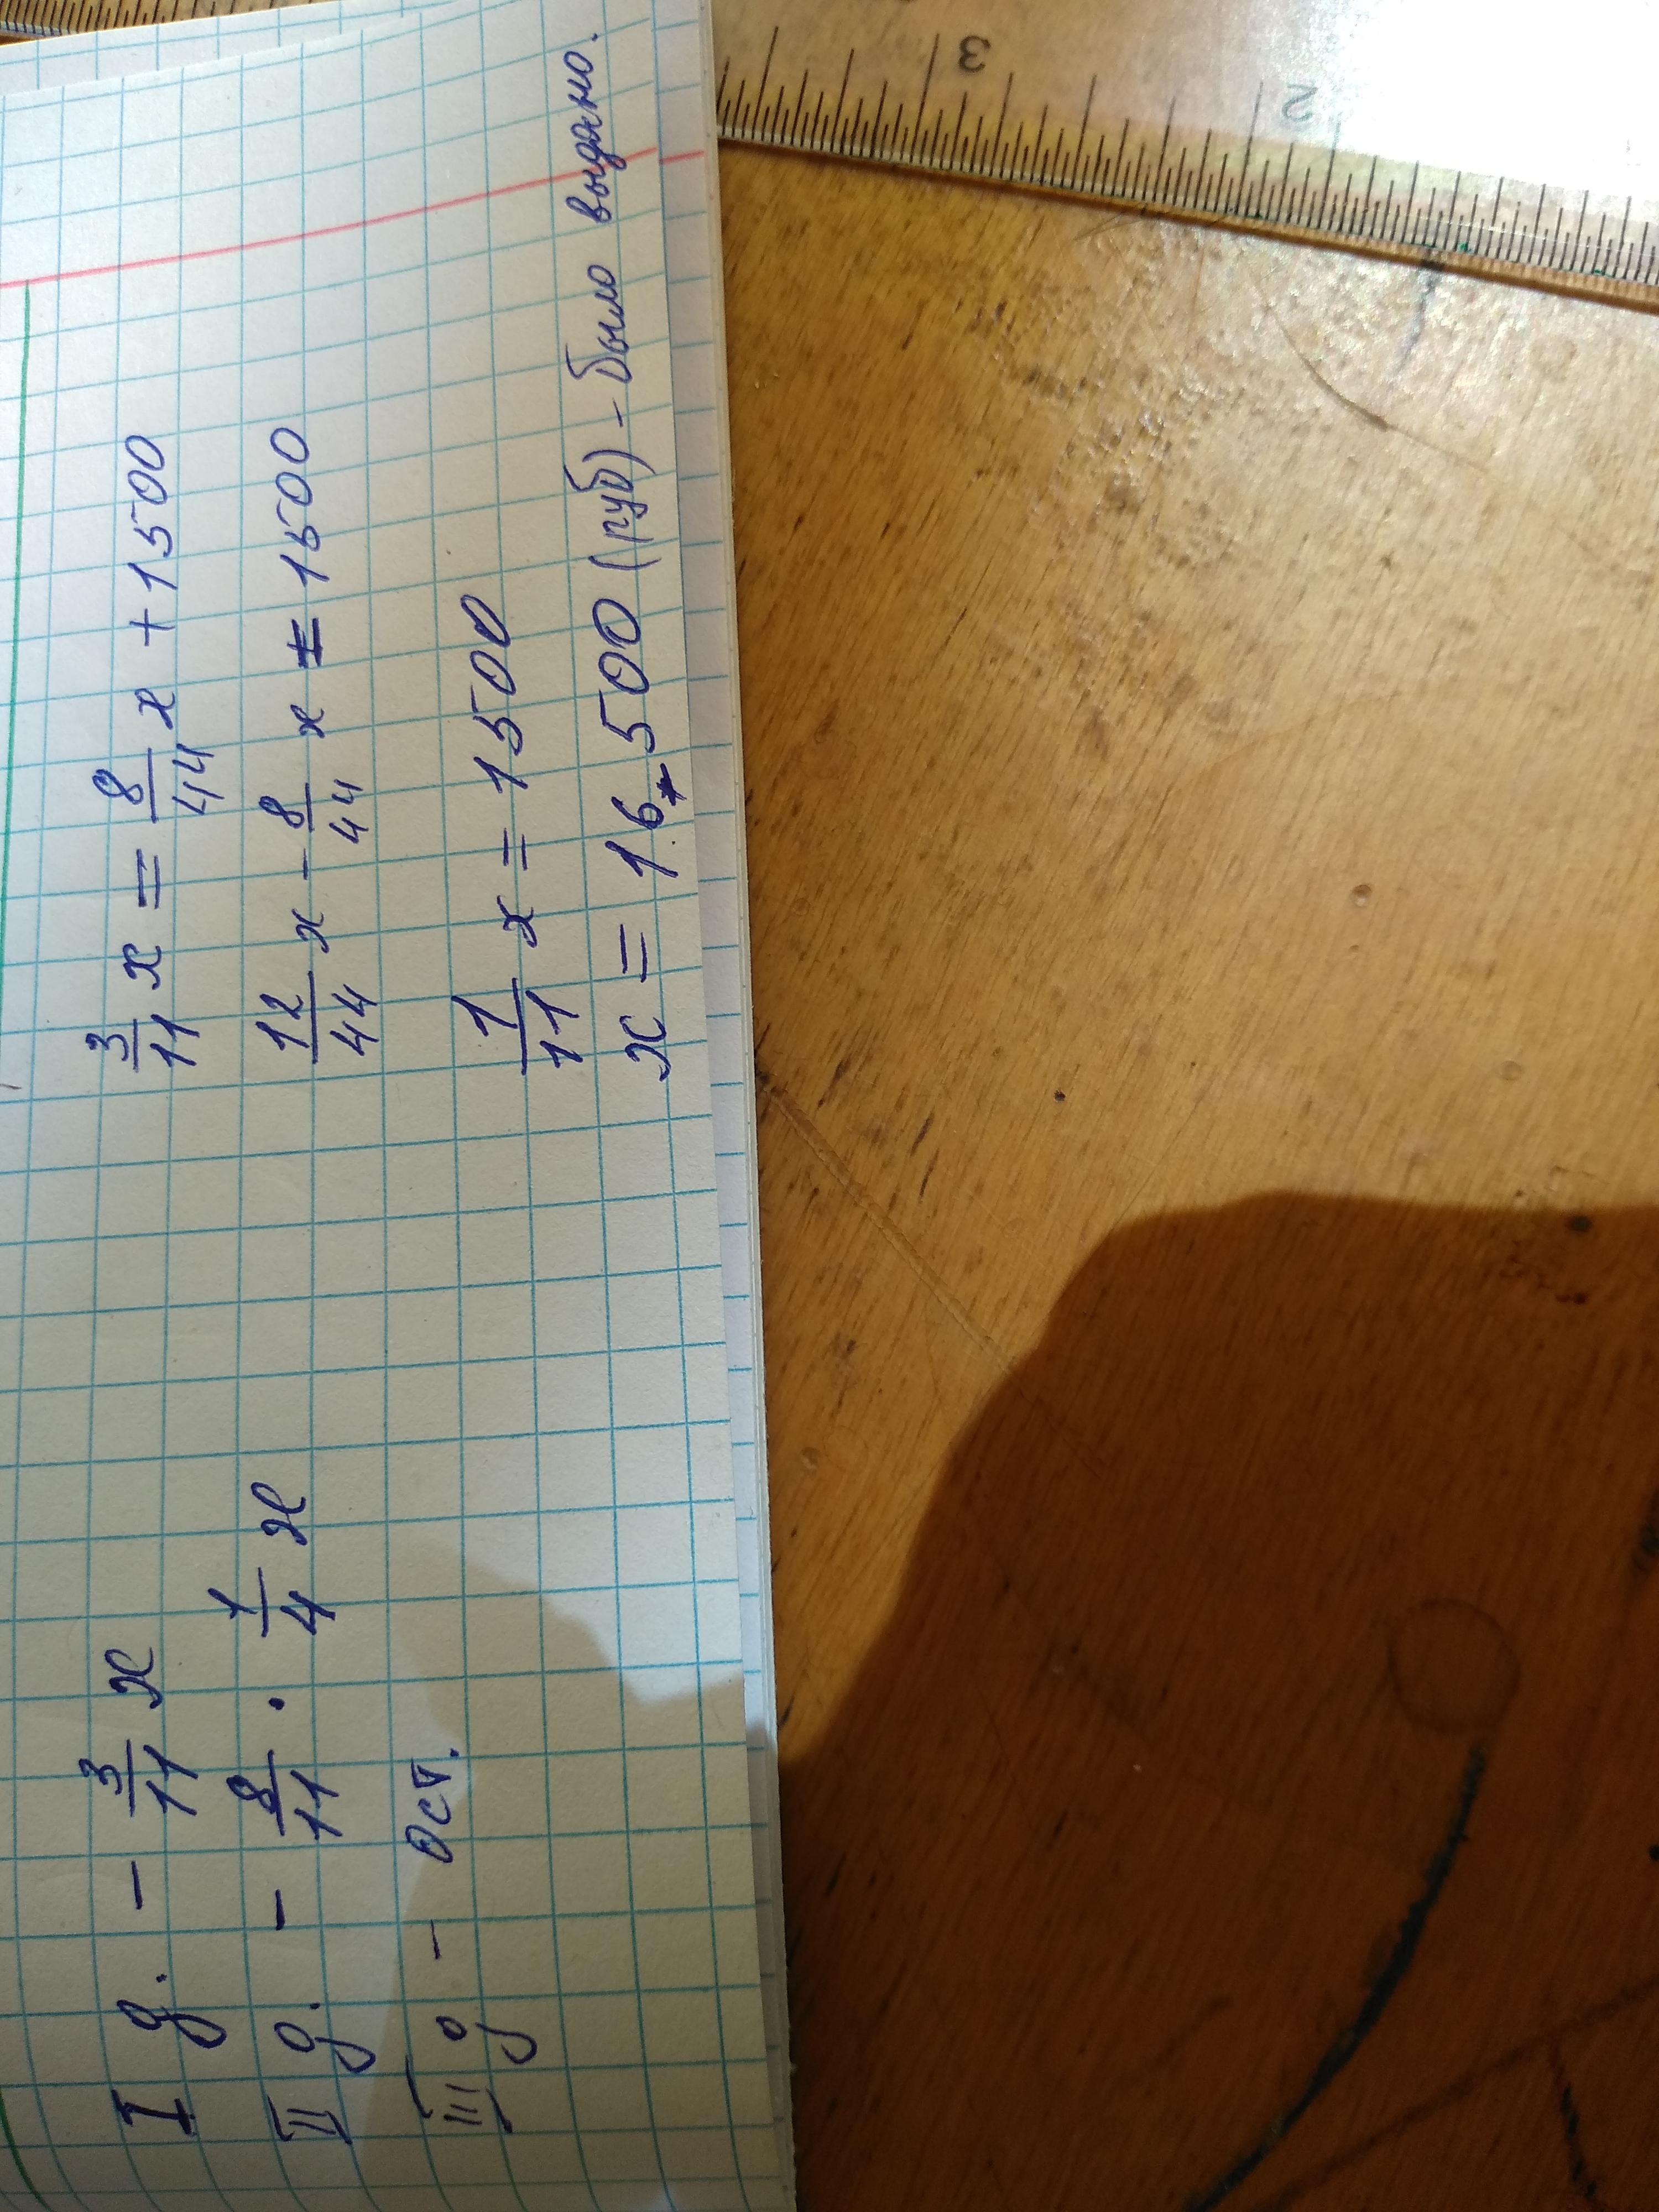 I д. - 3/11 x
II д. - 8/11 · 1/4 x
III д - Ост.
3/11 x = 8/44 x + 1500
12/44 x - 8/44 x = 1500
1/11 x = 1500
x = 16 500 (руб) - было выдано.
3
2